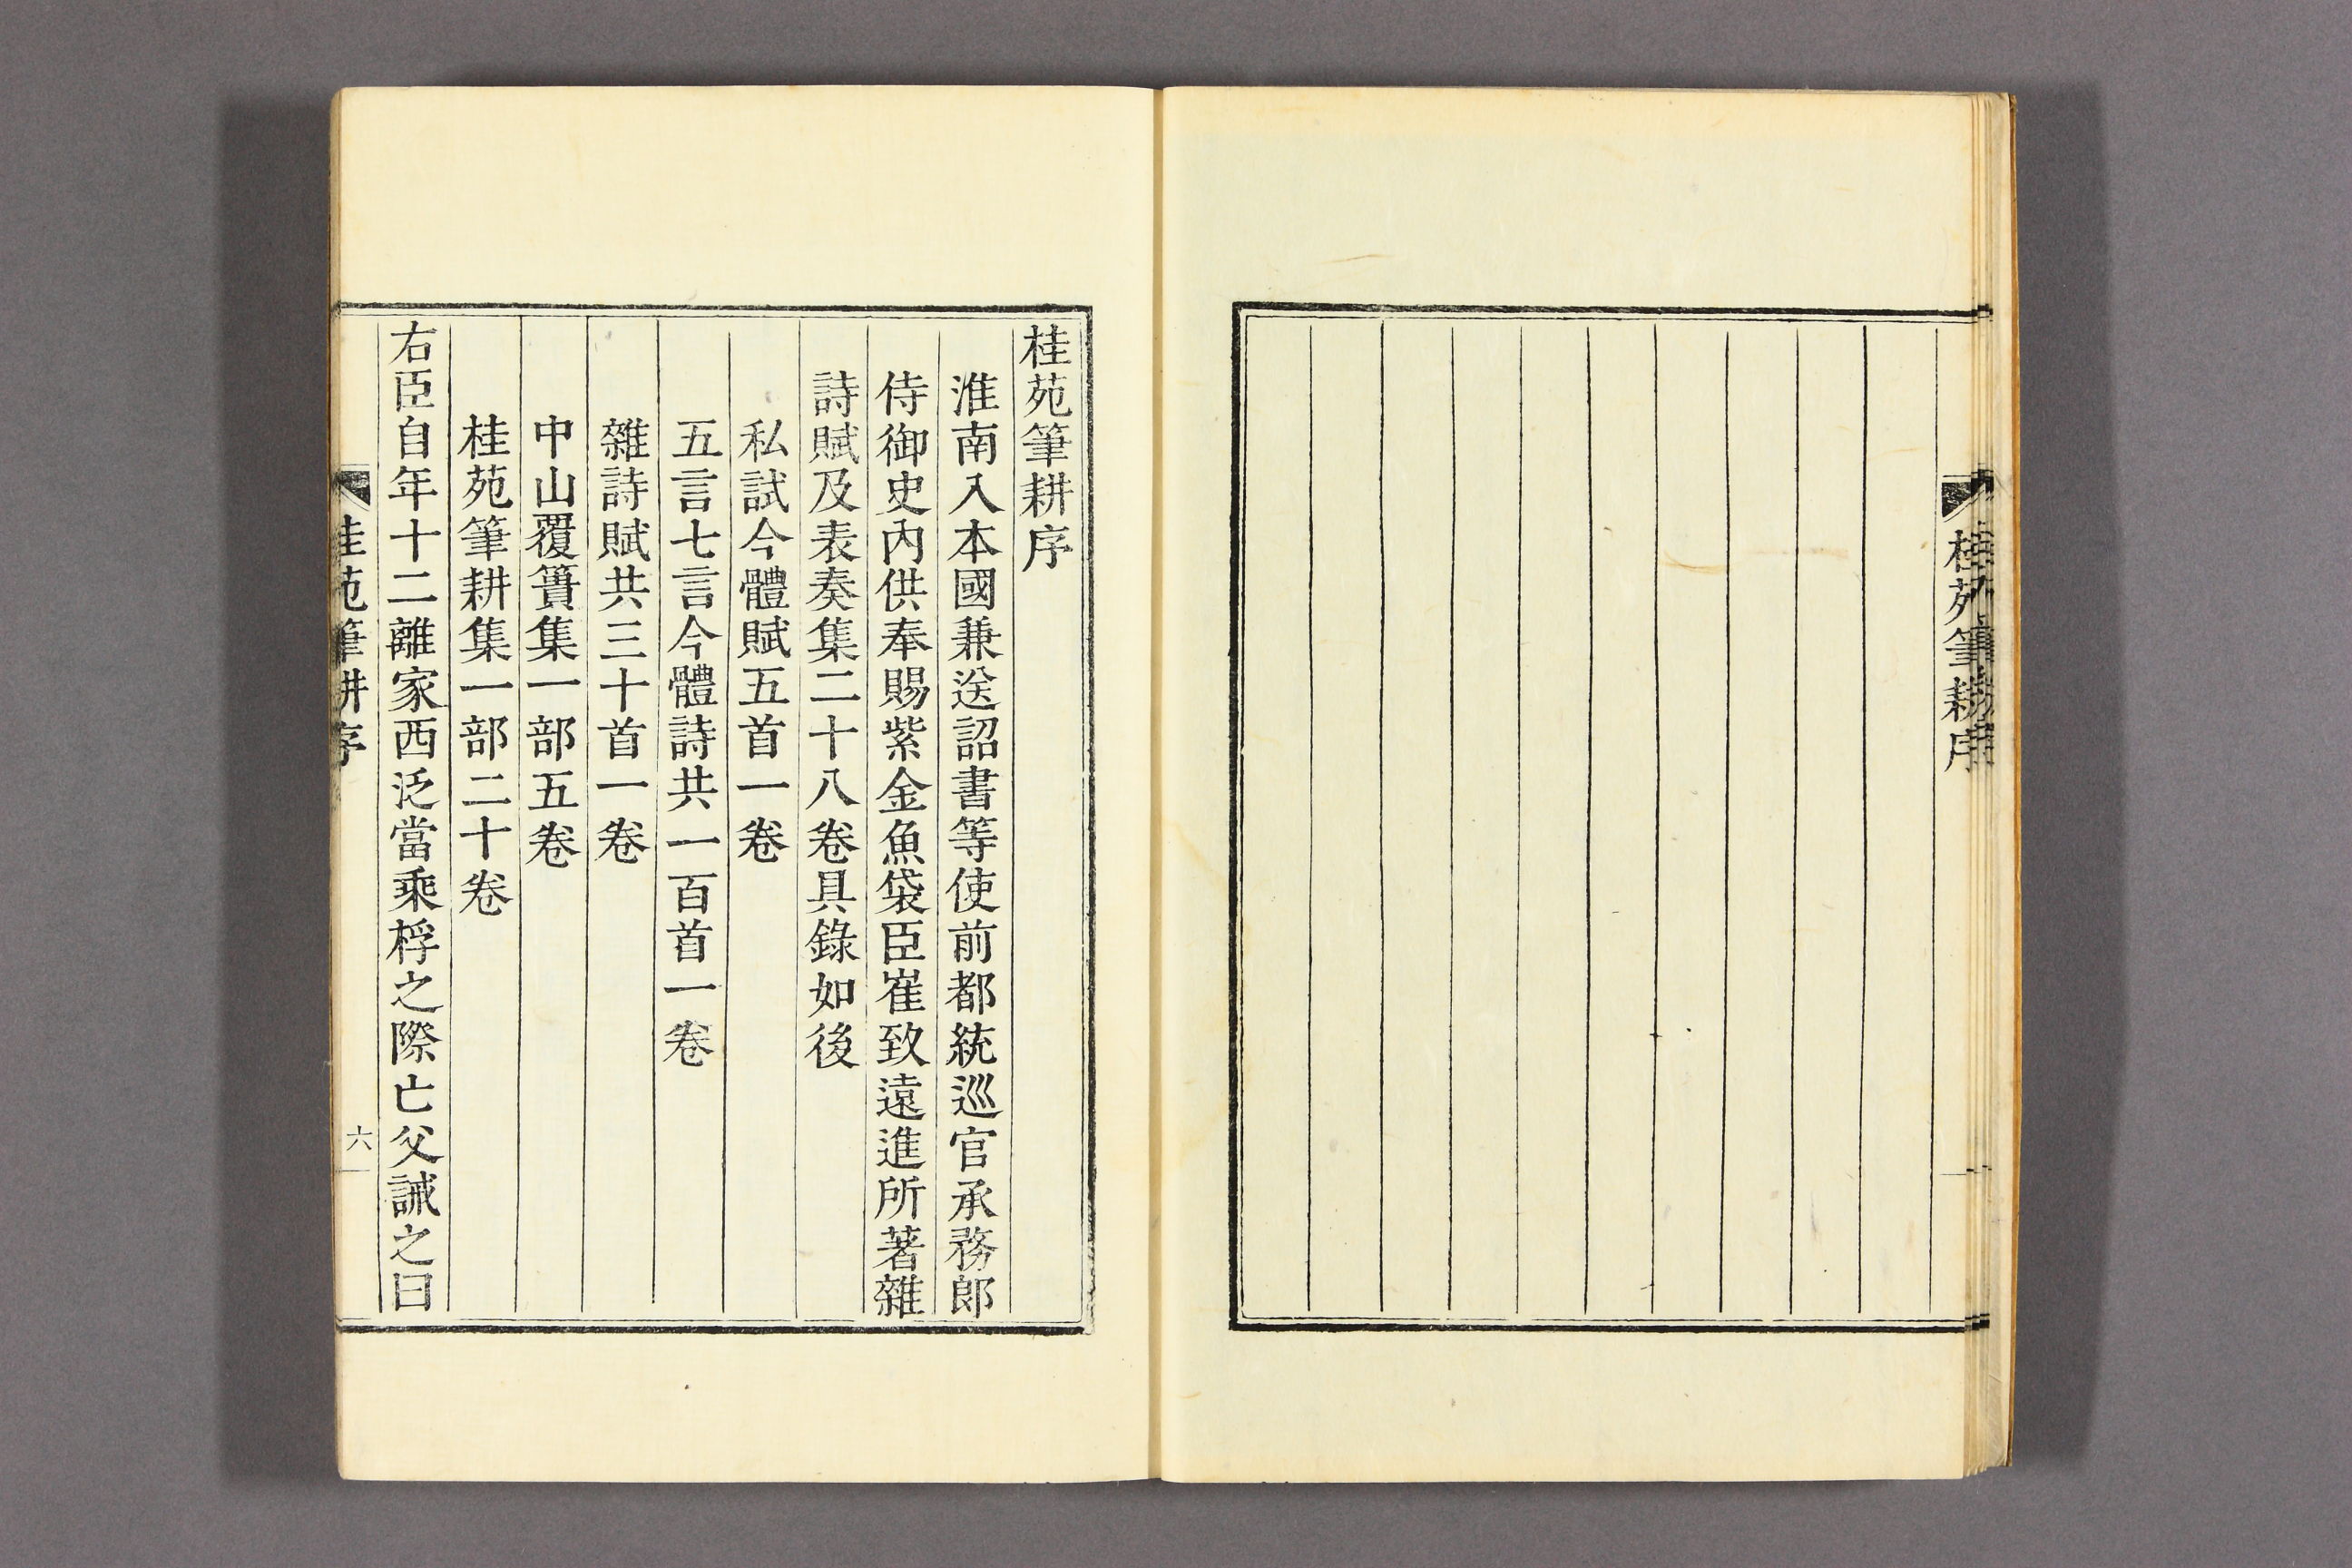 桂苑筆耕序
桂苑筆耕序
淮南入本國兼送詔書等使前都統巡官承務郎
侍御史內供奉賜紫金魚袋臣崔致遠進所著雜
詩賦及表奏集二十八卷具錄如後
私試今體賦五首一卷
五言七言今體詩共一百首一卷
雜詩賦共三十首一卷
中山覆簣集一部五卷
桂苑筆耕集一部二十卷
右臣自年十二離家西泛當乘桴之際亡父誡之曰
桂苑筆耕序
六